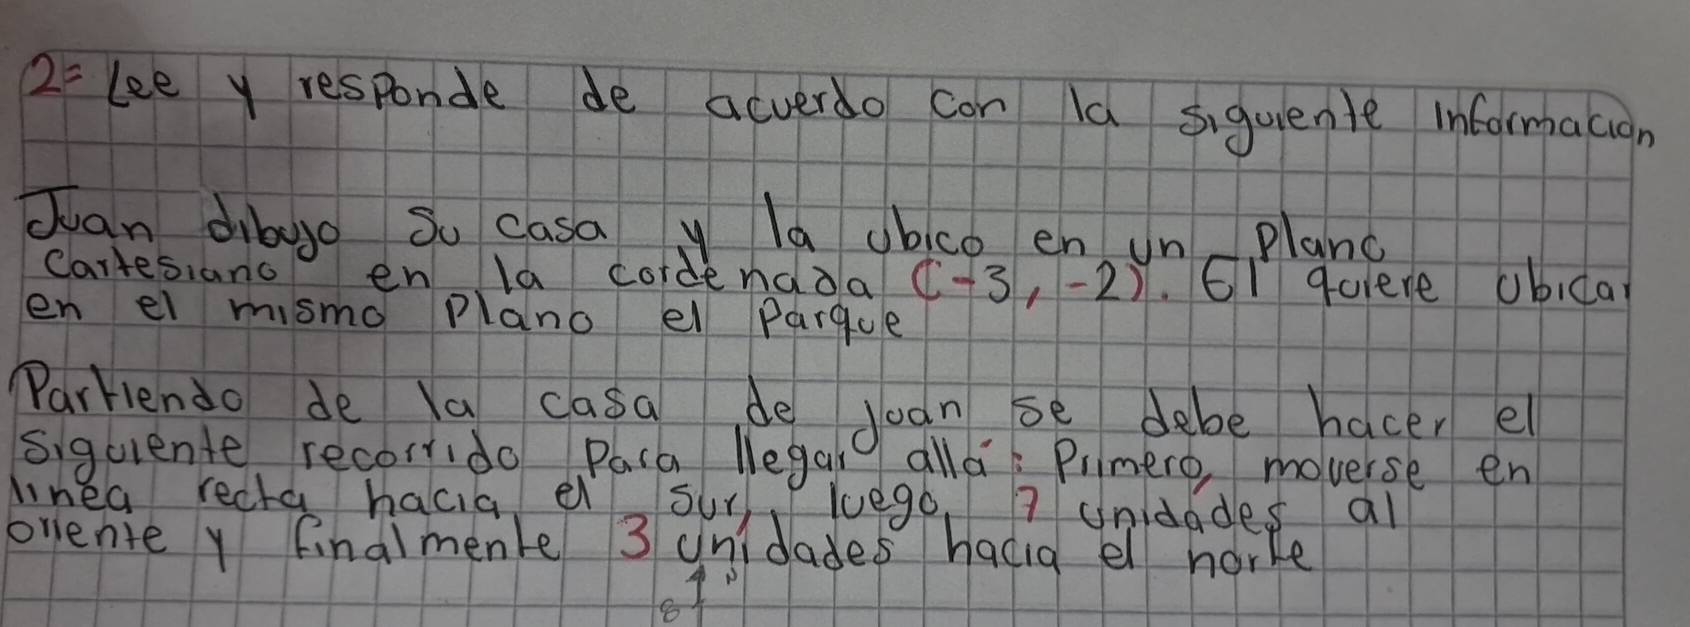 2= Lee y responde de acuerdo con la siguiente informacion
Juan dibujo su casa y la ubico en un plano
cartesiano en la cordenada (-3, -2). El quiere ubicar
en el mismo plano el parque
Partiendo de la casa de Juan se debe hacer el
siguiente recorrido para llegar allá: Primero, moverse en
linea recta hacia el sur, luego, 7 unidades al
oriente y finalmente 3 unidades hacia el norte